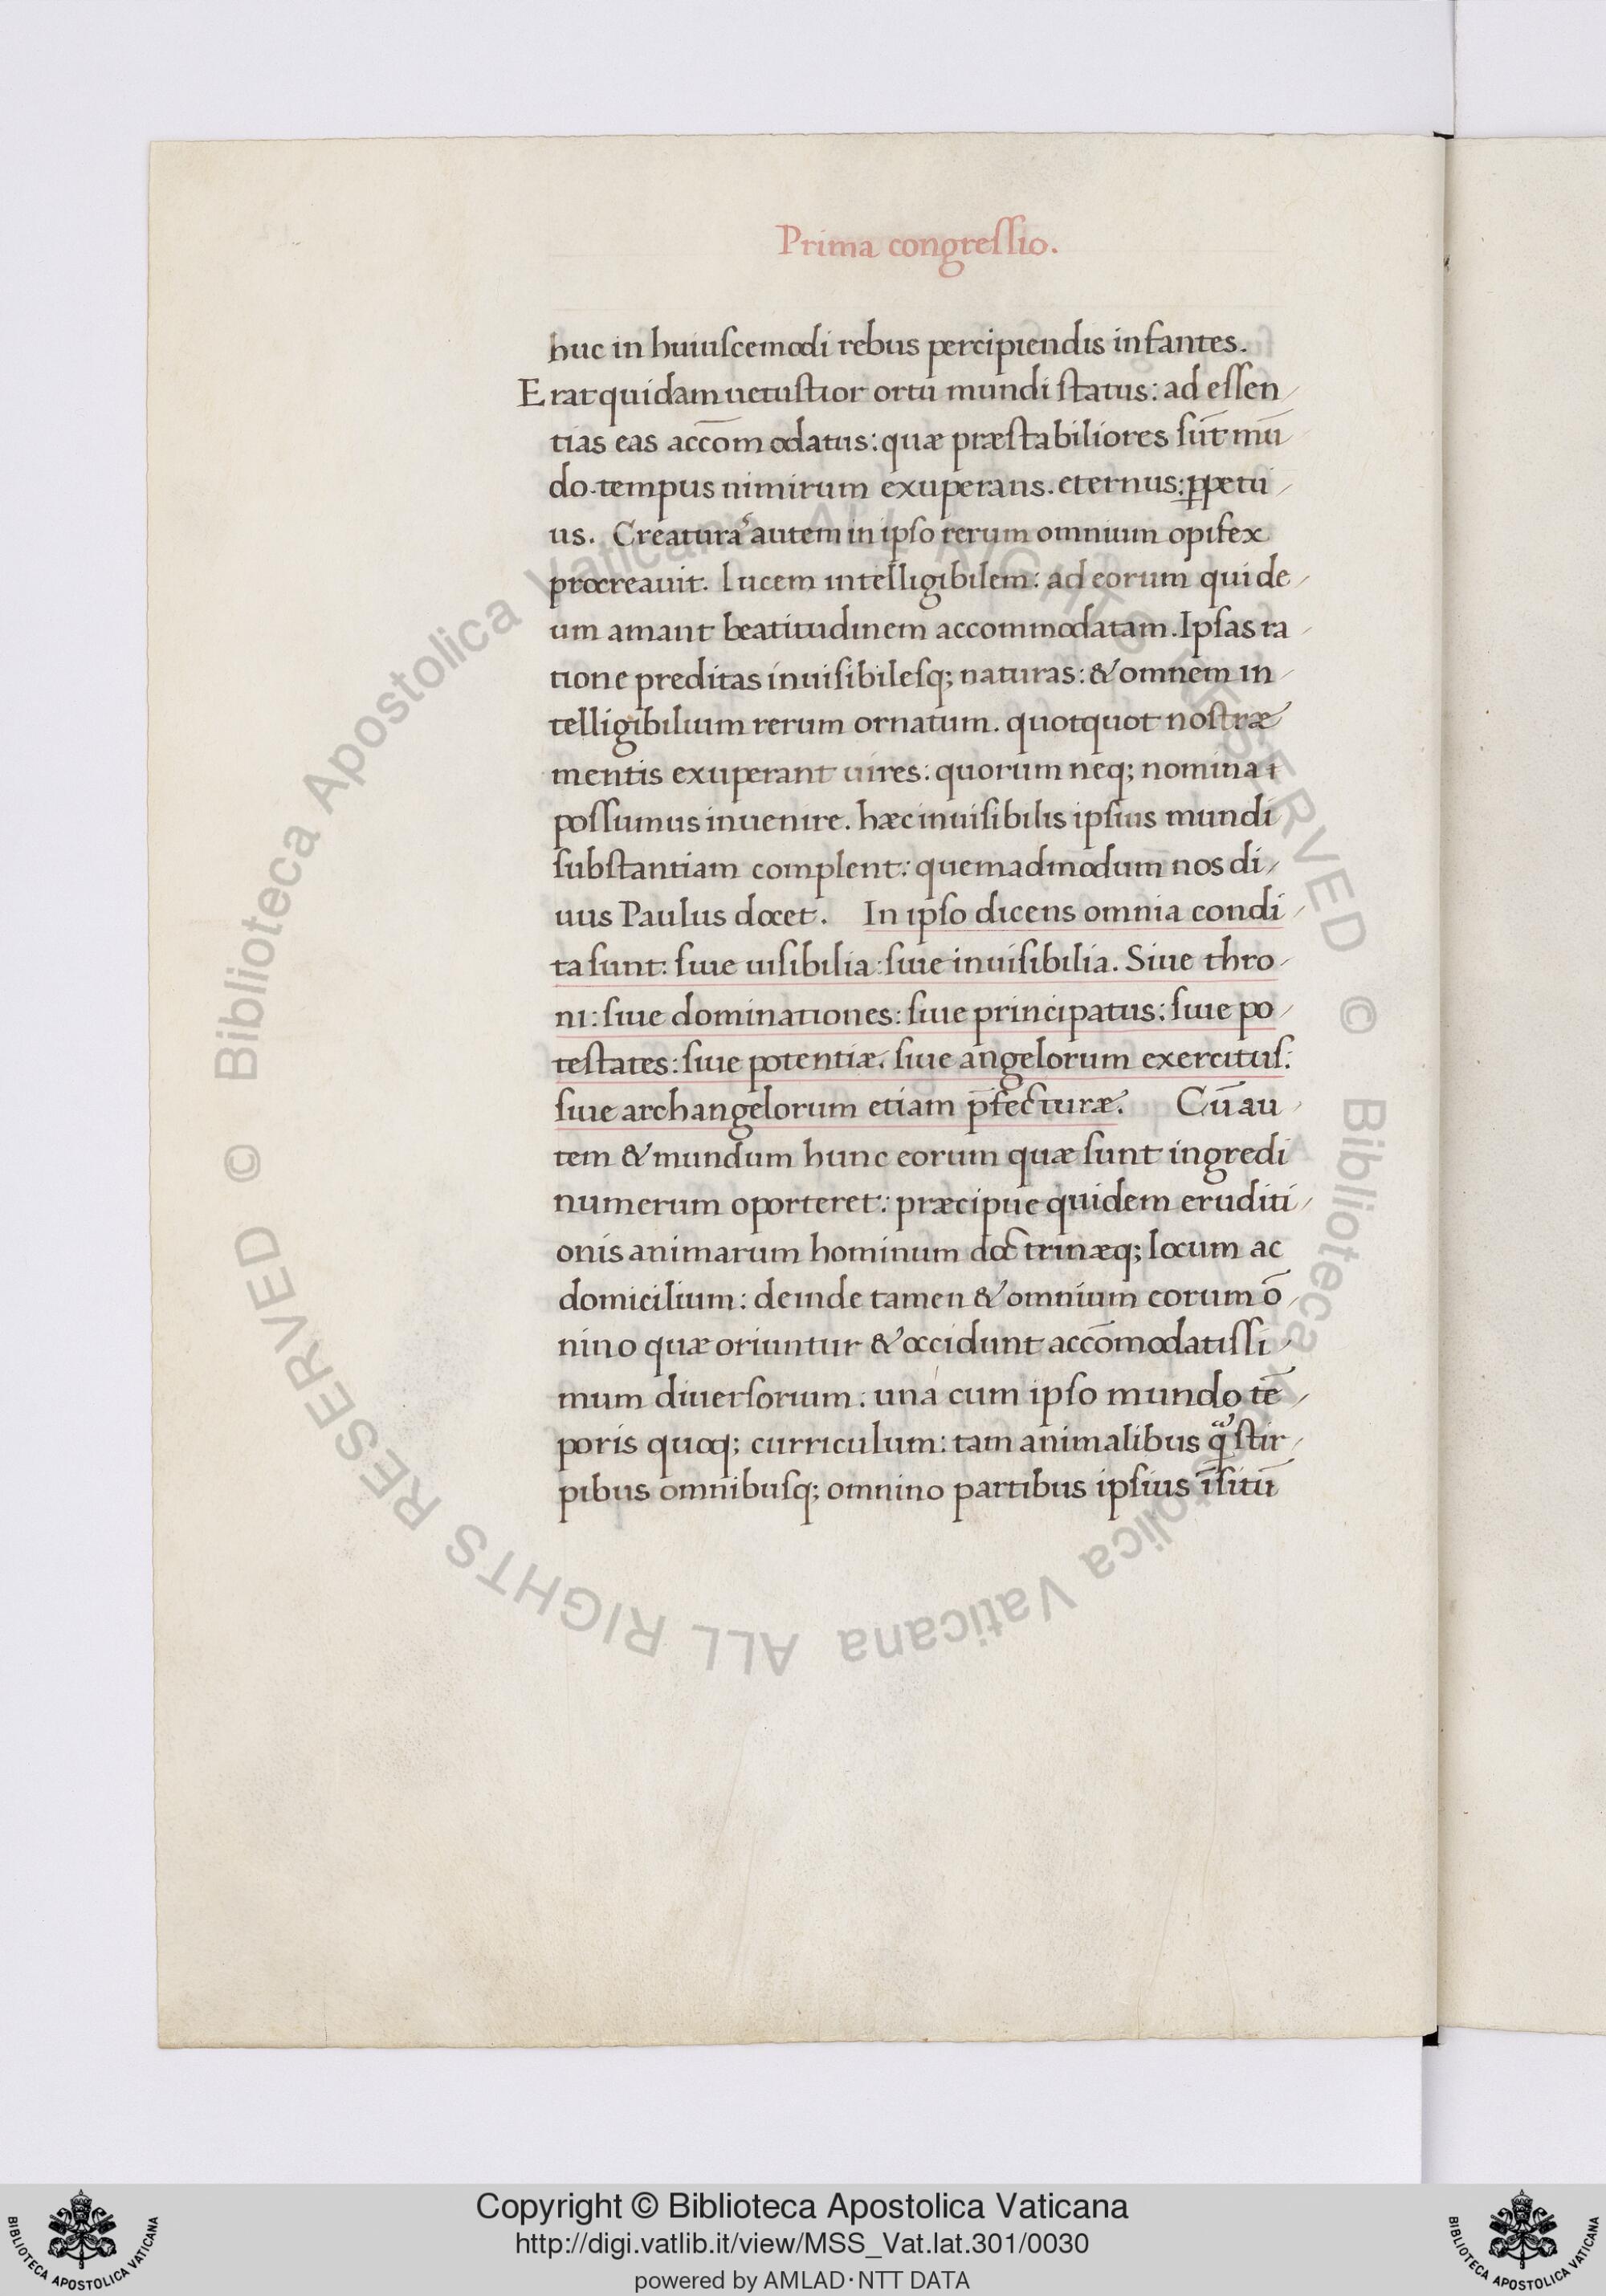 Prima congreſſio.
huc in huiuſcemodi rebus percipiendis infantes.
Erat quidam uetuſtior ortu mundi ſtatus: ad eſſen
tias eas accōmodatus: quæ præſtabiliores ſūt mū
do. tempus nimirum exuperans. eternus: ꝑpetu
us. Creaturã autem in ipſo rerum omnium opifex
procreauit. lucem intelligibilem: ad eorum qui de
um amant beatitudinem accommodatam. Ipſas ra
tione preditas inuiſibileſq; naturas: & omnem in
telligibilium rerum ornatum. quotquot noſtræ
mentis exuperant uires: quorum neq; nomina
poſſumus inuenire. hæc inuiſibilis ipſius mundi
ſubſtantiam complent: quemadmodum nos di
uus Paulus docet. In ipſo dicens omnia condi
ta ſunt: ſiue uiſibilia: ſiue inuiſibilia. Siue thro
ni: ſiue dominationes: ſiue principatus: ſiue po
teſtates: ſiue potentiæ. ſiue angelorum exercituſ:
ſiue archangelorum etiam p̄fecturæ. Cū au
tem & mundum hunc eorum quæ ſunt ingredi
numerum oporteret: præcipue quidem eruditi
onis animarum hominum doctrinæq; locum ac
domicilium: deinde tamen & omnium eorum ō
nino quæ oriuntur & occidunt accōmodatiſſi
mum diuerſorium: una cum ipſo mundo tē
poris quoq; curriculum: tam animalibus qᷓ ſtir
pibus omnibuſq; omnino partibus ipſius īſitū
© Biblioteca Apostolica Vaticana ALL RIGHTS RESERVED © Biblioteca Apostolica Vaticana ALL RIGHTS RESERVED
Copyright © Biblioteca Apostolica Vaticana
http://digi.vatlib.it/view/MSS_Vat.lat.301/0030
powered by AMLAD·NTT DATA
BIBLIOTECA APOSTOLICA VATICANA
BIBLIOTECA APOSTOLICA VATICANA